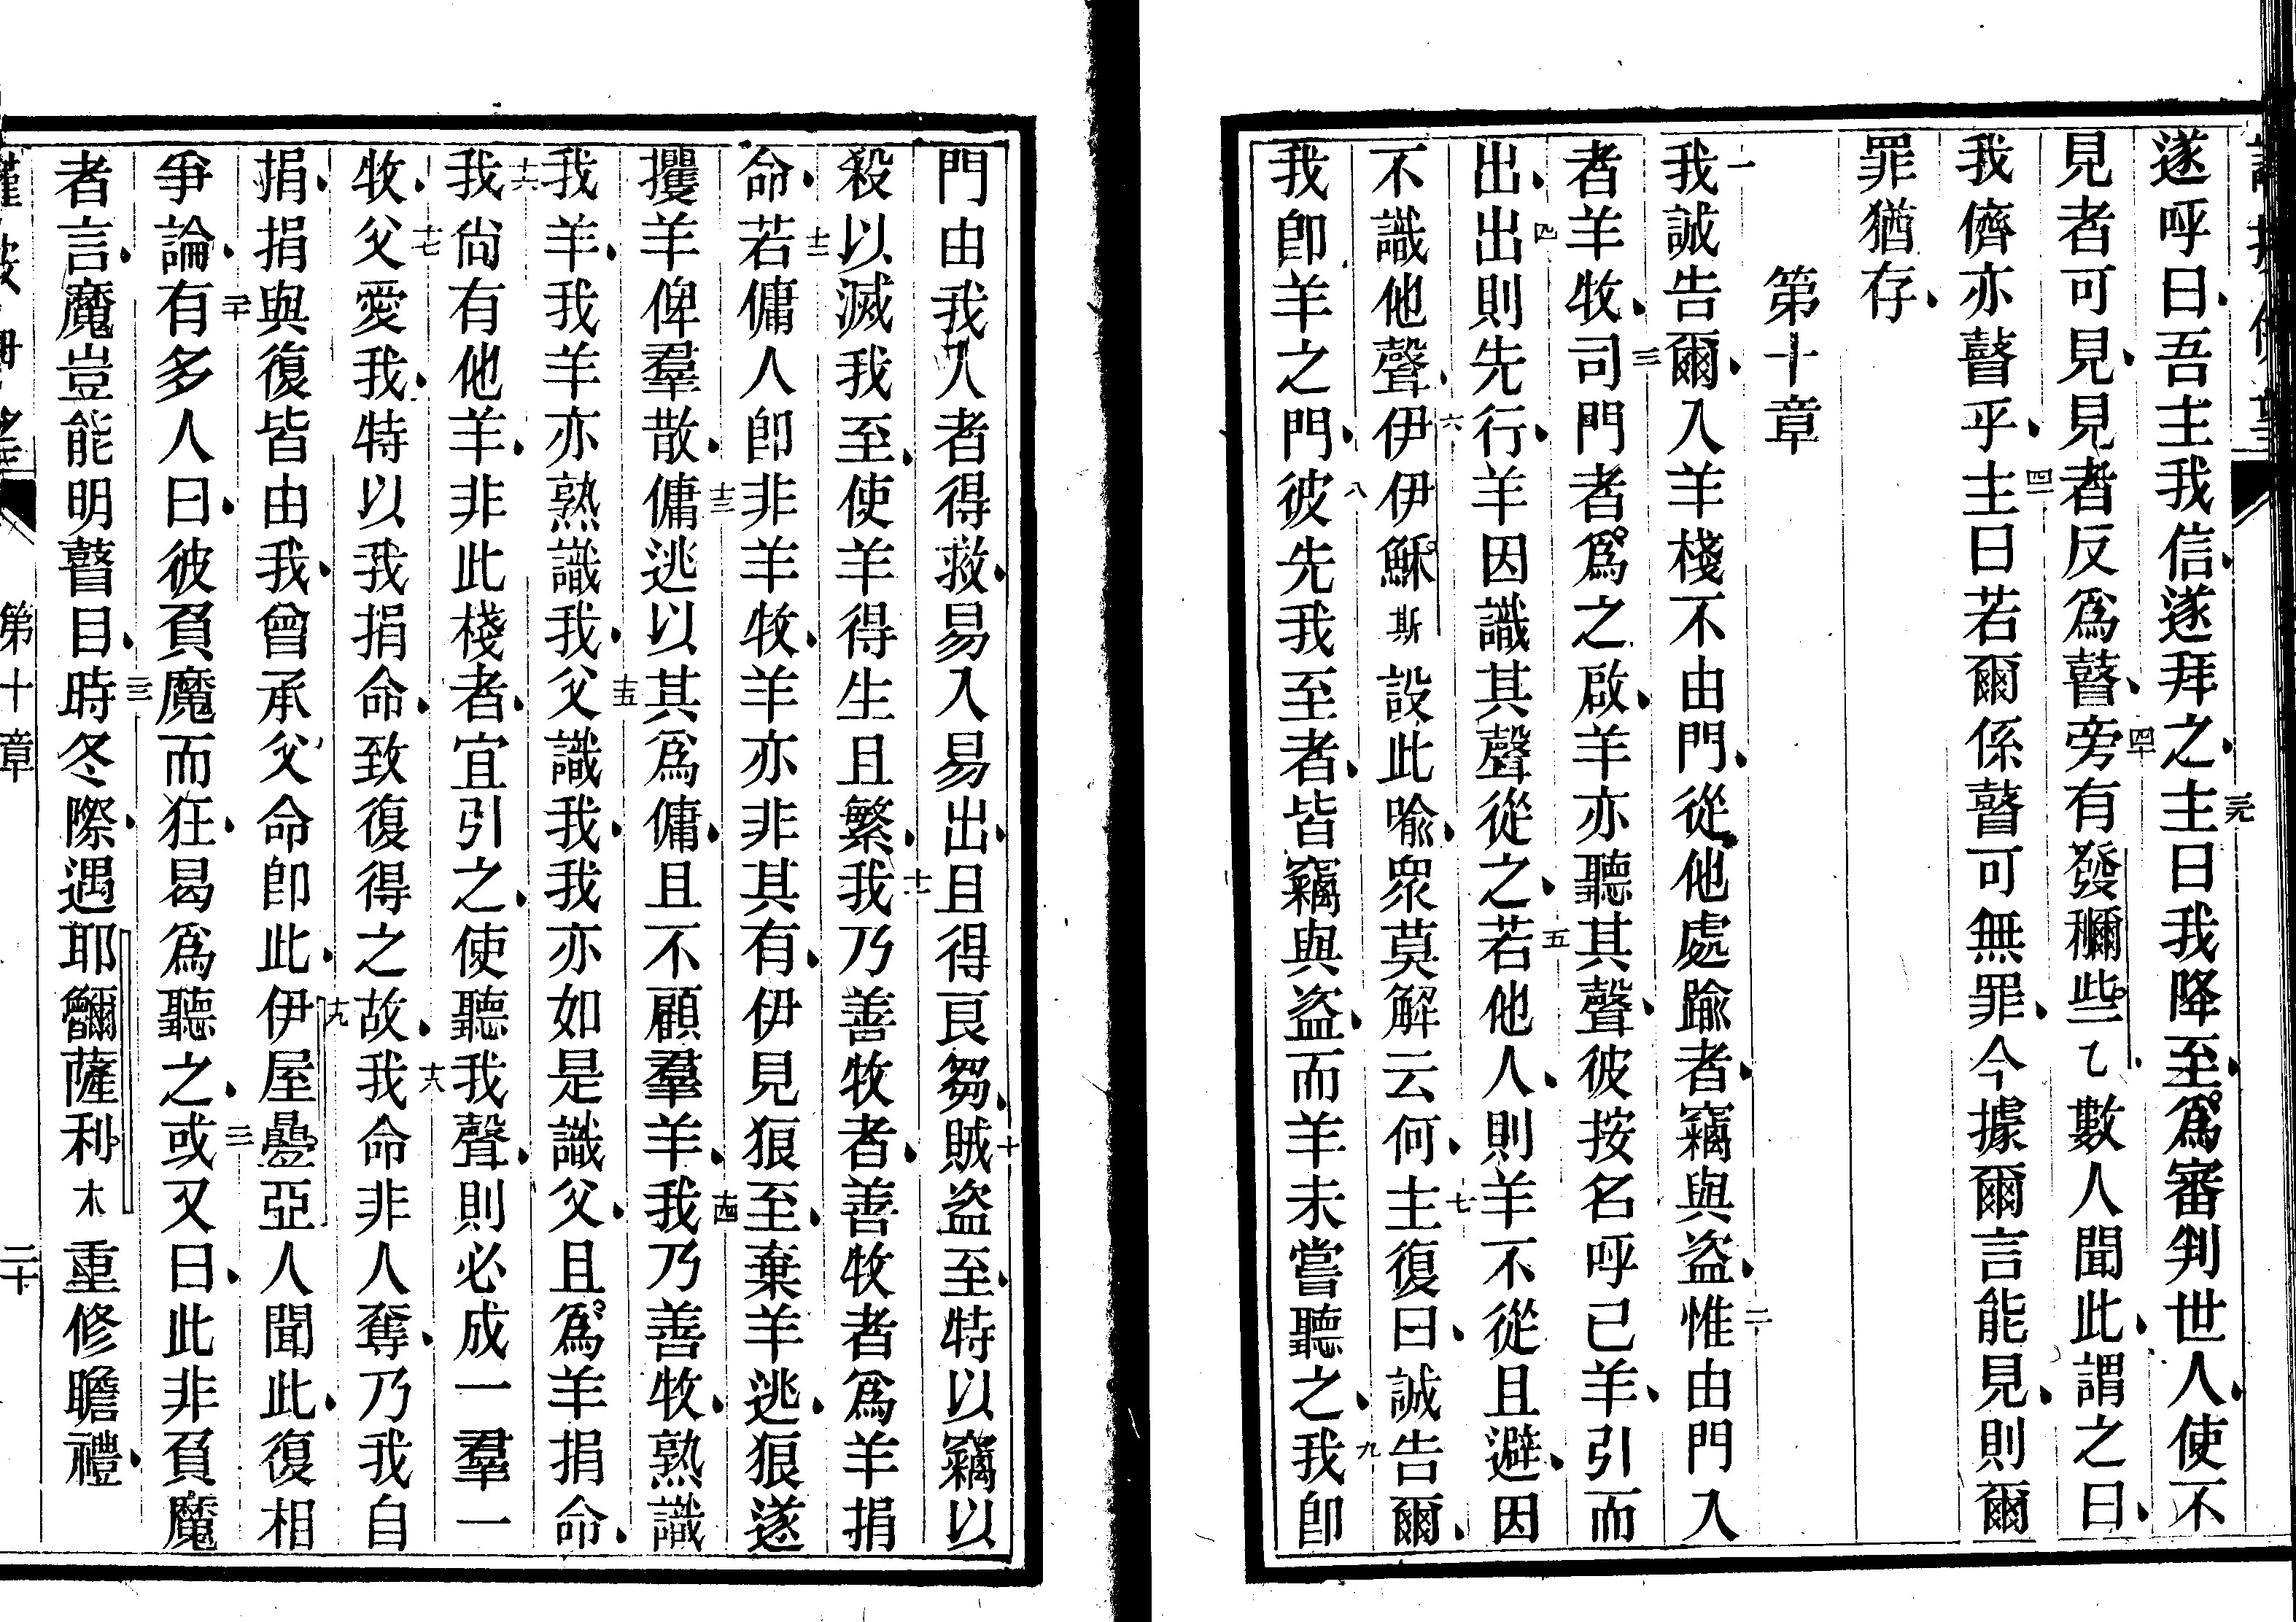 遂呼曰吾主我信遂拜之三九主曰我降至爲審判世人使不
見者可見見者反爲瞽四十旁有發穪些乙數人聞此謂之曰
我儕亦瞽乎四一主曰若爾係瞽可無罪今據爾言能見則爾
罪猶存
第十章
一我誠告爾入羊棧不由門從他處踰者竊與盜二惟由門入
者羊牧三司門者爲之啟羊亦聽其聲彼按名呼己羊引而
出四出則先行羊因識其聲從之五若他人則羊不從且避因
不識他聲六伊伊穌斯設此喻眾莫解云何七主復曰誠告爾
我卽羊之門八彼先我至者皆竊與盜而羊未嘗聽之九我卽
門由我入者得救易入易出且得良芻十賊盜至特以竊以
殺以滅我至使羊得生且繁十一我乃善牧者善牧者爲羊捐
命十二若傭人卽非羊牧羊亦非其有伊見狼至棄羊逃狼遂
攫羊俾羣散十三傭逃以其爲傭且不顧羣羊十四我乃善牧熟識
我羊我羊亦熟識我十五父識我我亦如是識父且爲羊捐命
十六我尙有他羊非此棧者宜引之使聽我聲則必成一羣一
牧十七父愛我特以我捐命致復得之故十八我命非人奪乃我自
捐捐與復皆由我曾承父命卽此十九伊屋疊亞人聞此復相
爭論二十有多人曰彼負魔而狂曷爲聽之二一或又曰此非負魔
者言魔豈能明瞽目二二時冬際遇耶薩利木重修瞻禮
第十章
二十